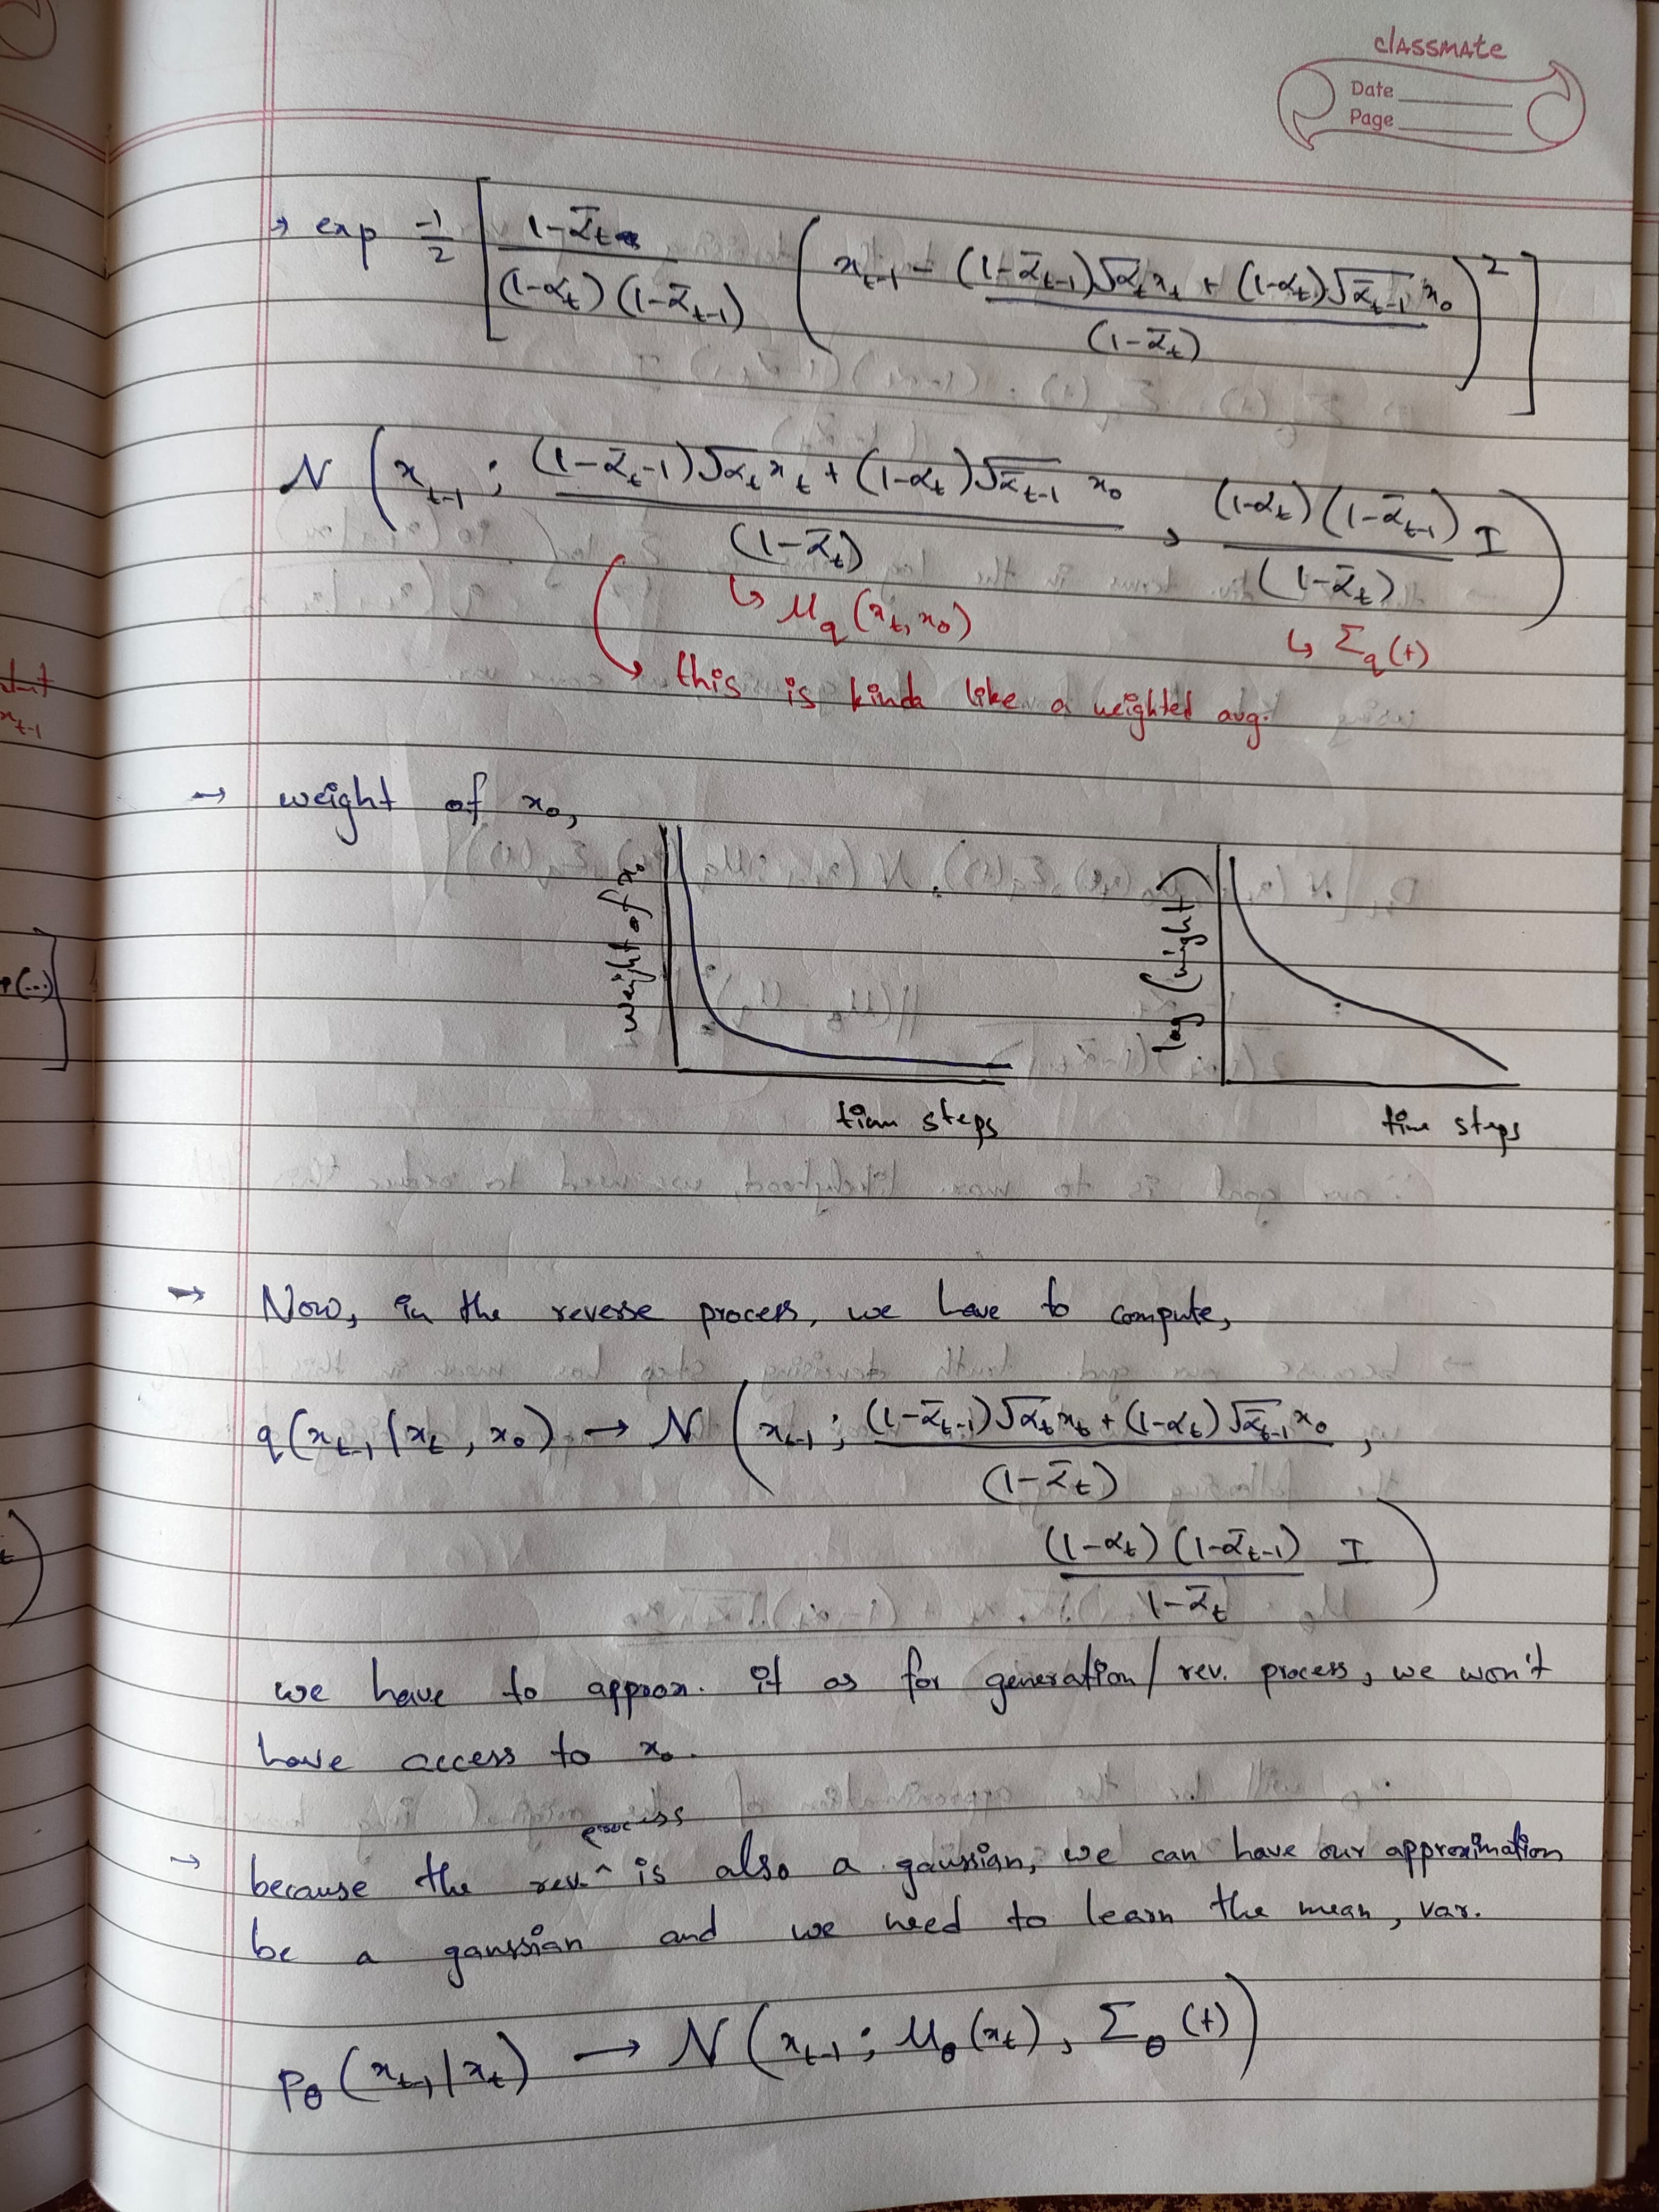 classmate
Date
Page
→ exp -1/2 [ (1-ᾱ_t) / ((1-α_t)(1-ᾱ_{t-1})) ( x_{t-1} - ((1-ᾱ_{t-1})√α_t x_t + (1-α_t)√ᾱ_{t-1} x_0) / (1-ᾱ_t) )² ]
N ( x_{t-1} ; ((1-ᾱ_{t-1})√α_t x_t + (1-α_t)√ᾱ_{t-1} x_0) / (1-ᾱ_t) , ((1-α_t)(1-ᾱ_{t-1})) / (1-ᾱ_t) I )
↳ μ_q (x_t, x_0)
↳ Σ_q (t)
→ this is kinda like a weighted avg.
→ weight of x_0,
weight of x_0
log (weight)
time steps
time steps
→ Now, in the reverse process, we have to compute,
q(x_{t-1} | x_t, x_0) → N ( x_{t-1} ; ((1-ᾱ_{t-1})√α_t x_t + (1-α_t)√ᾱ_{t-1} x_0) / (1-ᾱ_t) ,
((1-α_t)(1-ᾱ_{t-1})) / (1-ᾱ_t) I )
we have to approx. it as for generation/rev. process, we won't
have access to x_0.
process
→ because the rev. ^ is also a gaussian, we can have our approximation
be a gaussian and we need to learn the mean, var.
P_θ (x_{t-1} | x_t) → N ( x_{t-1} ; μ_θ (x_t) , Σ_θ (t) )